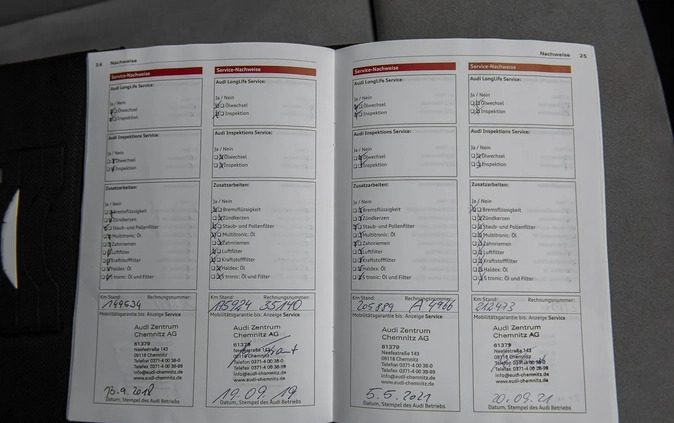 24 Nachweise
Service-Nachweise
Audi LongLife Service:
Ja / Nein
Ölwechsel
Inspektion
Audi Inspektions Service:
Ja / Nein
Ölwechsel
Inspektion
Zusatzarbeiten:
Bremsflüssigkeit
Zündkerzen
Staub- und Pollenfilter
Multitronic: Öl
Zahnriemen
Luftfilter
Kraftstofffilter
Haldex: Öl
S tronic: Öl und Filter
Km Stand: Rechnungsnummer:
149634
Mobilitätsgarantie bis: Anzeige Service
Audi Zentrum
Chemnitz AG
61379
Neefestraße 143
09116 Chemnitz
Telefon 0371-4 00 38-0
Telefax 0371-4 00 38-99
info@audi-chemnitz.de
www.audi-chemnitz.de
Datum, Stempel des Audi Betriebs
Service-Nachweise
Audi LongLife Service:
Ja / Nein
Ölwechsel
Inspektion
Audi Inspektions Service:
Ja / Nein
Ölwechsel
Inspektion
Zusatzarbeiten:
Bremsflüssigkeit
Zündkerzen
Staub- und Pollenfilter
Multitronic: Öl
Zahnriemen
Luftfilter
Kraftstofffilter
Haldex: Öl
S tronic: Öl und Filter
Km Stand: Rechnungsnummer:
175924 35140
Mobilitätsgarantie bis: Anzeige Service
Audi Zentrum
Chemnitz AG
61379
Neefestraße 143
09116 Chemnitz
Telefon 0371-4 00 38-0
Telefax 0371-4 00 38-99
info@audi-chemnitz.de
www.audi-chemnitz.de
19.09.19
Datum, Stempel des Audi Betriebs
Nachweise 25
Service-Nachweise
Audi LongLife Service:
Ja / Nein
Ölwechsel
Inspektion
Audi Inspektions Service:
Ja / Nein
Ölwechsel
Inspektion
Zusatzarbeiten:
Bremsflüssigkeit
Zündkerzen
Staub- und Pollenfilter
Multitronic: Öl
Zahnriemen
Luftfilter
Kraftstofffilter
Haldex: Öl
S tronic: Öl und Filter
Km Stand: Rechnungsnummer:
205889 A 4966
Mobilitätsgarantie bis: Anzeige Service
Audi Zentrum
Chemnitz AG
61379
Neefestraße 143
09116 Chemnitz
Telefon 0371-4 00 38-0
Telefax 0371-4 00 38-99
info@audi-chemnitz.de
www.audi-chemnitz.de
5.5.2021
Datum, Stempel des Audi Betriebs
Service-Nachweise
Audi LongLife Service:
Ja / Nein
Ölwechsel
Inspektion
Audi Inspektions Service:
Ja / Nein
Ölwechsel
Inspektion
Zusatzarbeiten:
Bremsflüssigkeit
Zündkerzen
Staub- und Pollenfilter
Multitronic: Öl
Zahnriemen
Luftfilter
Kraftstofffilter
Haldex: Öl
S tronic: Öl und Filter
Km Stand: Rechnungsnummer:
212493
Mobilitätsgarantie bis: Anzeige Service
Audi Zentrum
Chemnitz AG
61379
Neefestraße 143
09116 Chemnitz
Telefon 0371-4 00 38-0
Telefax 0371-4 00 38-99
info@audi-chemnitz.de
www.audi-chemnitz.de
20.09.21
Datum, Stempel des Audi Betriebs